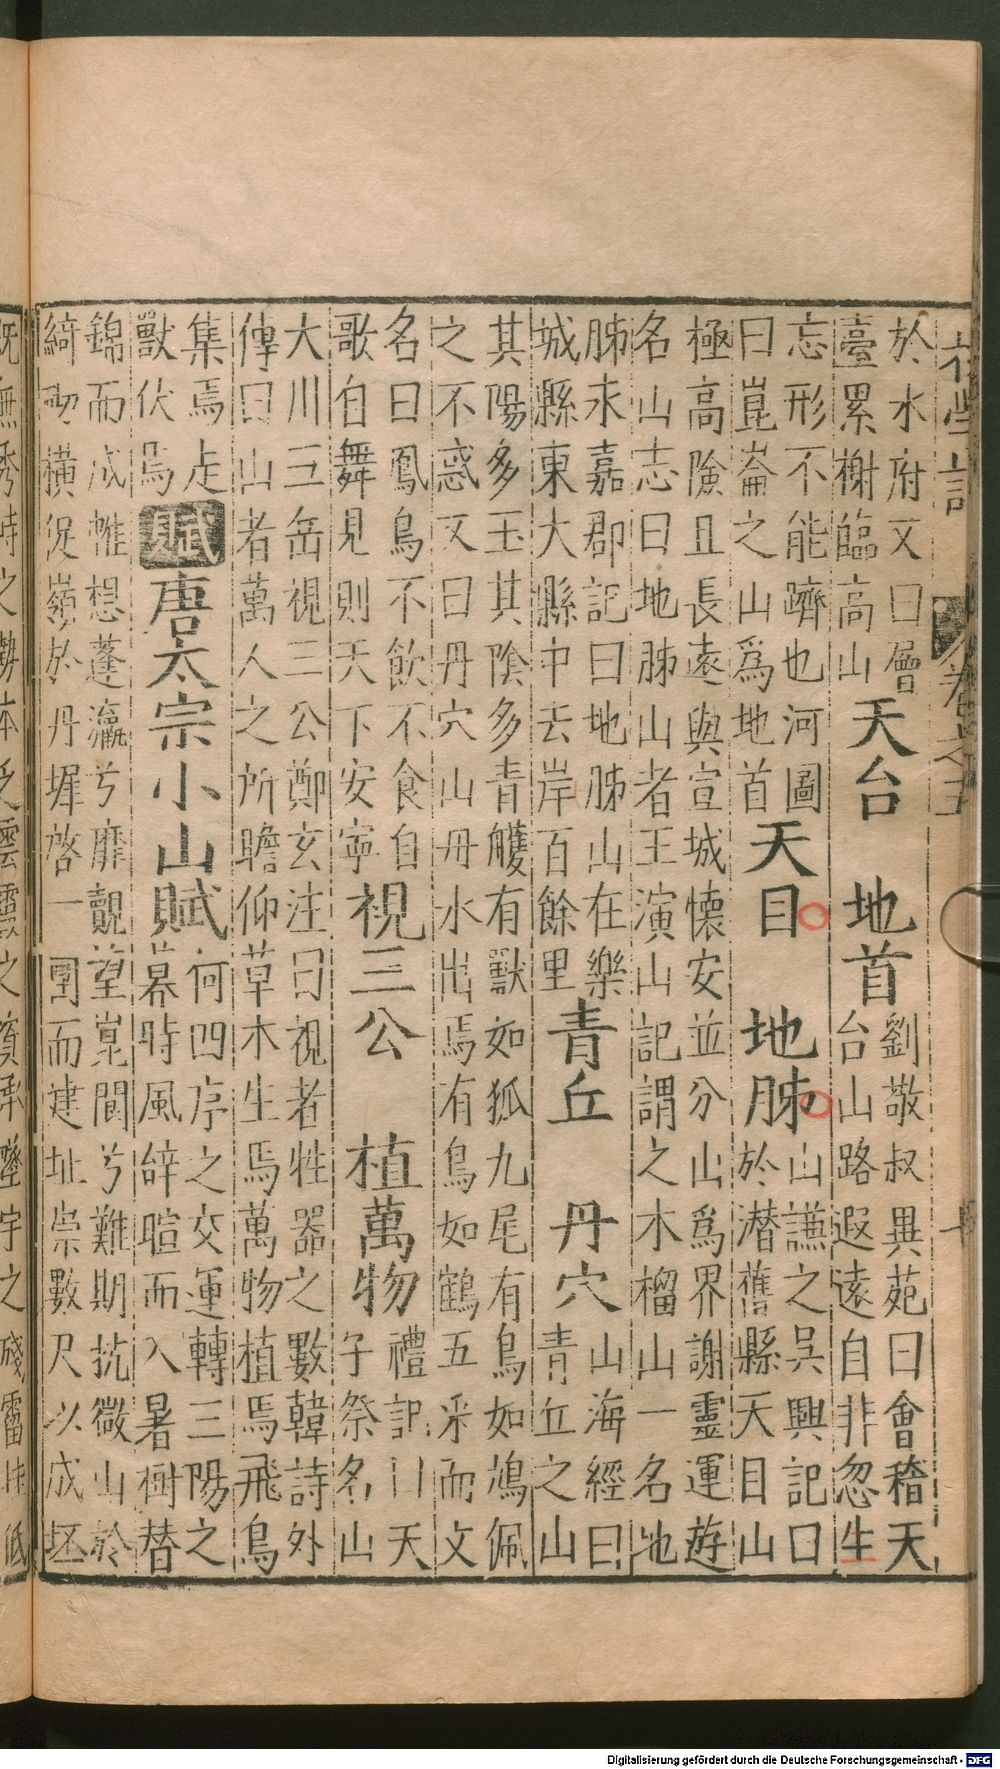 於水府又曰層
臺累榭臨高山
天台 地首
劉敬叔異苑曰會稽天
台山路遐遠自非忽生
忘形不能躋也河圖
曰崑崙之山爲地首
天目 地胏
山謙之吳興記曰
於潛舊縣天目山
極高險且長遠與宣城懷安並分山爲界謝靈運遊
名山志曰地胏山者王演山記謂之木榴山一名地
胏永嘉郡記曰地胏山在樂
城縣東大縣中去岸百餘里
青丘 丹穴
山海經曰
青丘之山
其陽多玉其陰多青雘有獸如狐九尾有鳥如鳩佩
之不惑又曰丹穴山丹水出焉有鳥如鶴五采而文
名曰鳳鳥不飲不食自
歌自舞見則天下安寧
視三公 植萬物
禮記曰天
子祭名山
大川五岳視三公鄭玄注曰視者牲器之數韓詩外
傳曰山者萬人之所瞻仰草木生焉萬物植焉飛鳥
集焉走
獸伏焉
賦
唐太宗小山賦
何四序之交運轉三陽之
暮時風辭暄而入暑樹替
錦而成帷想蓬瀛兮靡覿望崑閬兮難期抗微山於
綺砌橫促嶺於丹墀啓一圍而建址崇數尺以成坯
既無秀峙之勢本乏雲霞之資承墜宇之殘霤挂低
卷之五
Digitalisierung gefördert durch die Deutsche Forschungsgemeinschaft - DFG